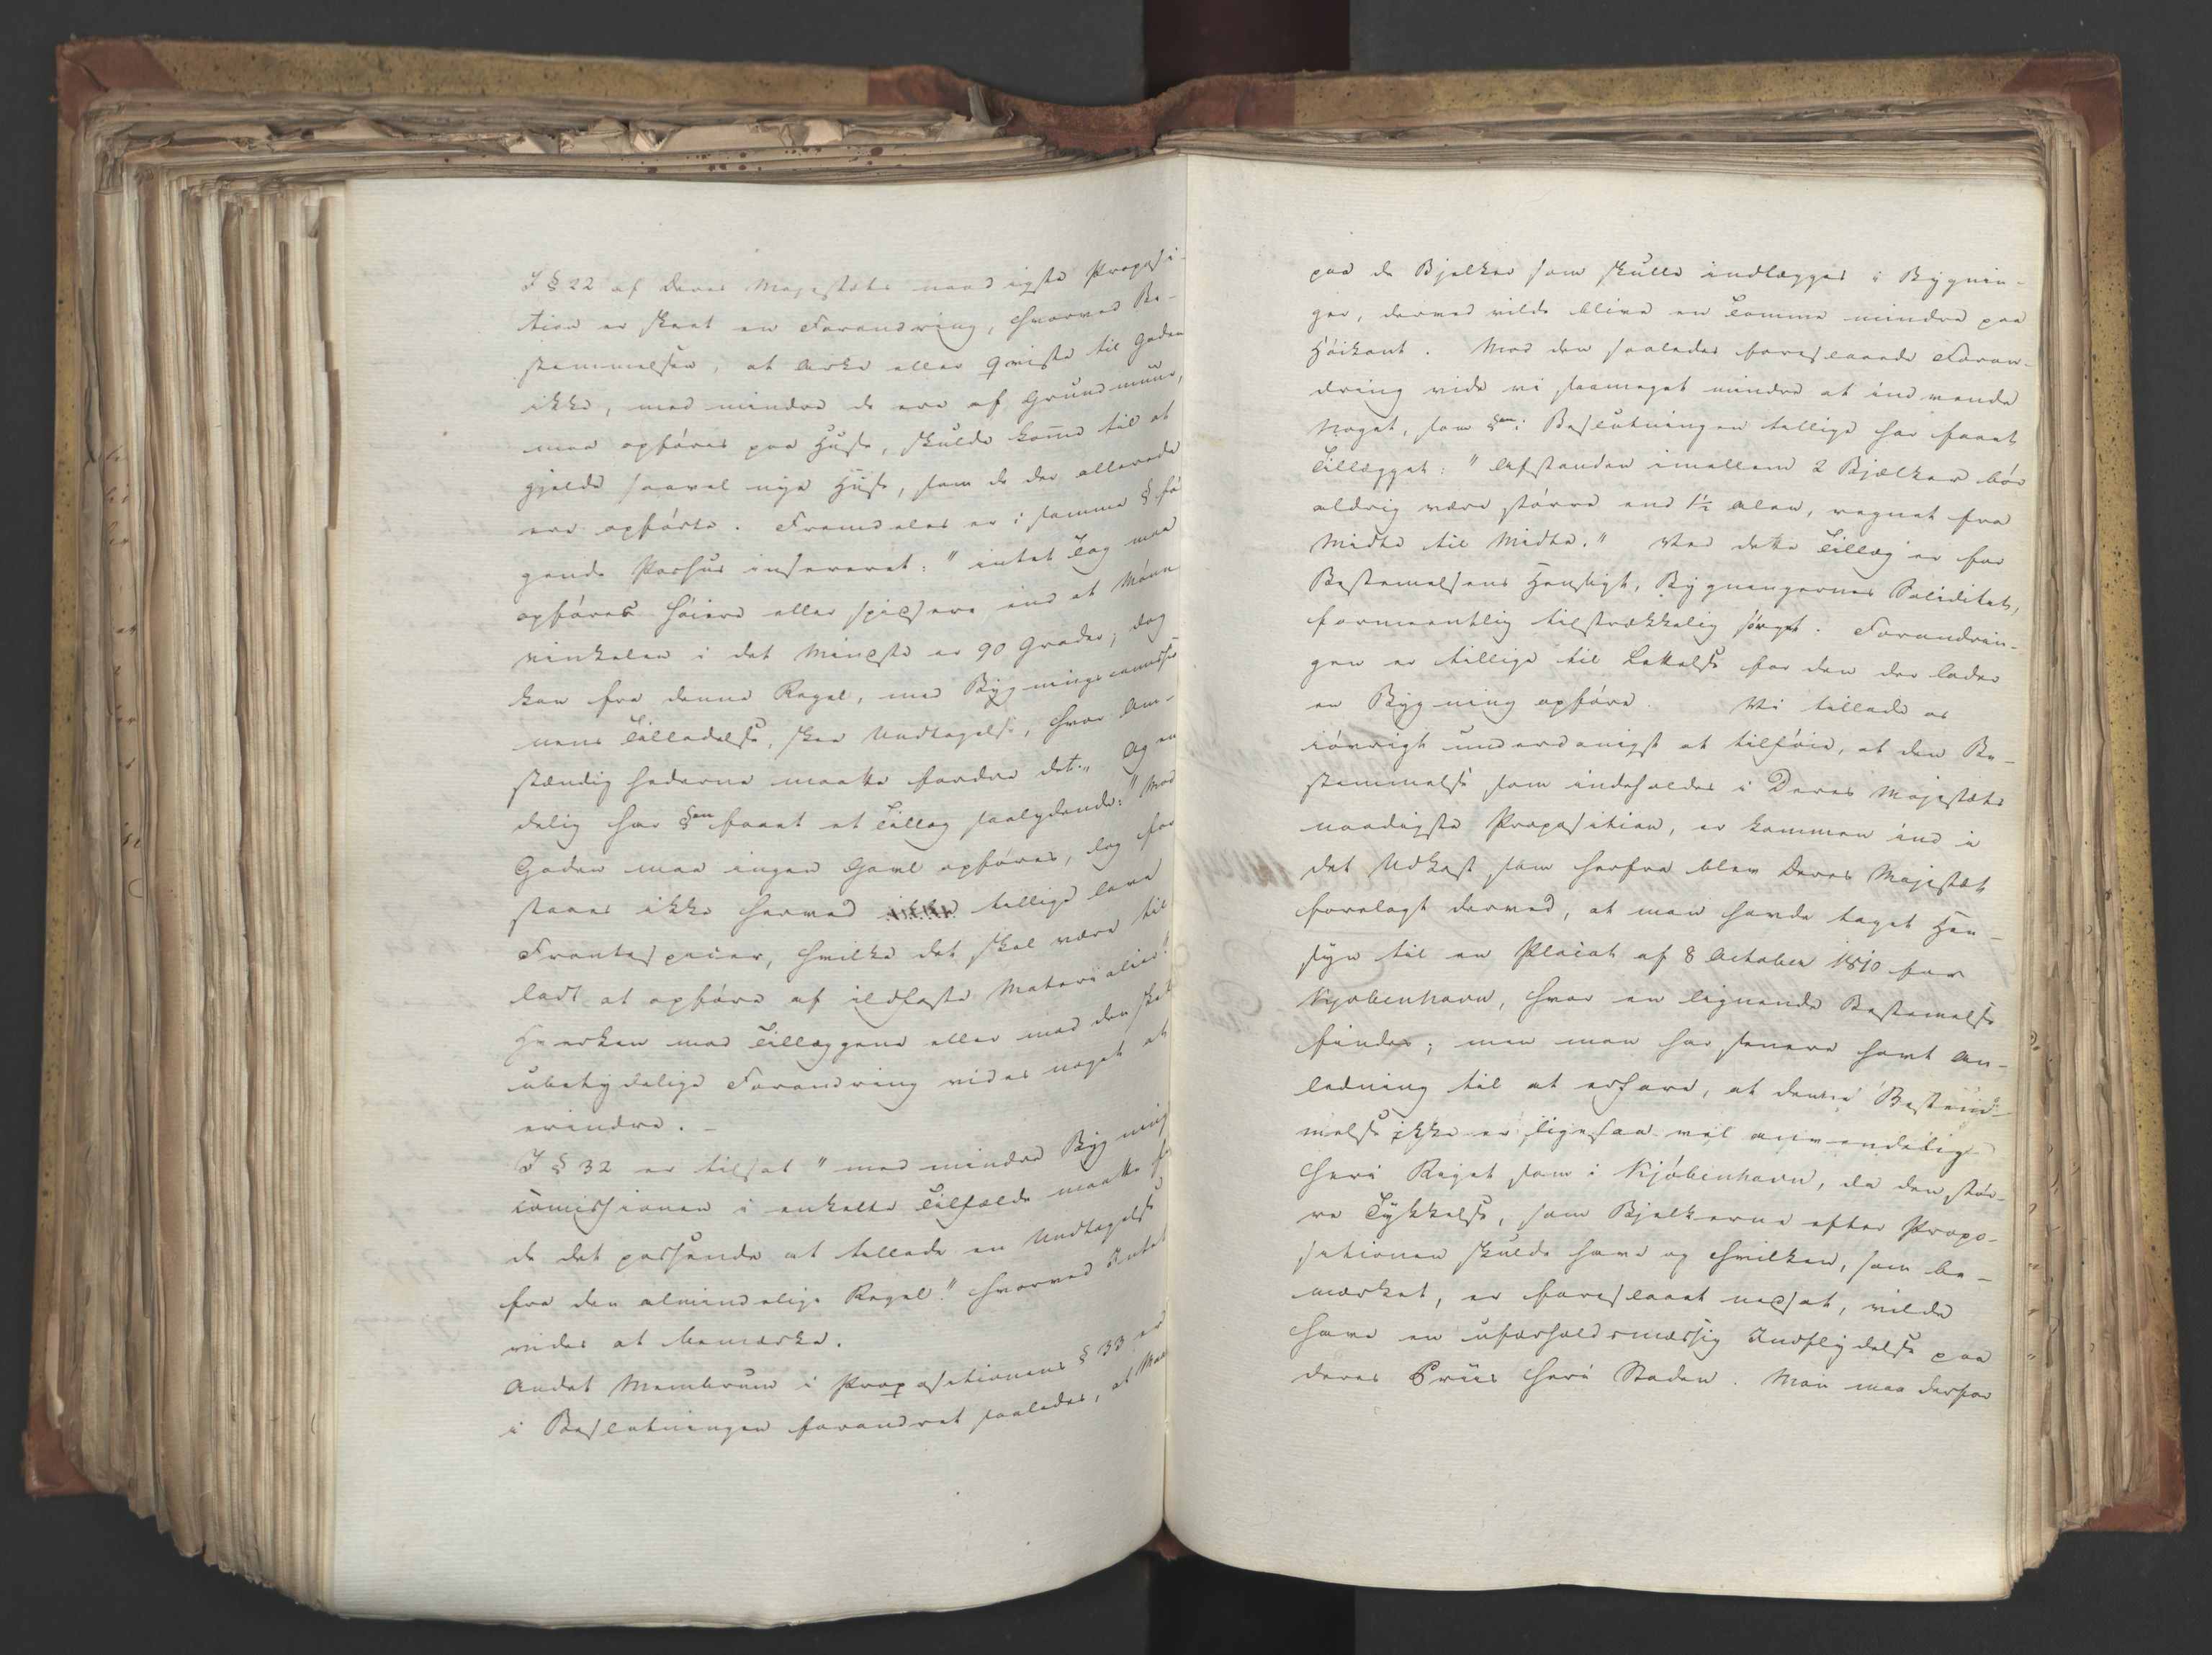 I § 22 af Deres Majestæts naadigste Proposi-
tion er skeet en Forandring, hvorved Be-
stemmelsen, at Arke eller Qviste til Gaden
ikke, med mindre de ere af Grundmuur,
maa opføres paa Huse, skulde kom̄e til at
gjelde saavel nye Huse, som de der allerede
ere opførte. Fremdeles er i samme § føl
gende Passus insereret: "intet Tag maa
opføres høiere eller spidsere end at Møne
vinkelen i det Mindste er 90 Grader; dog
kan fra denne Regel, med Bygningscommissio
nens Tilladelse, skee Undtagelse, hvor Om-
stændighederne maatte fordre det." Og en
delig har §en faaet et Tillæg saalydende: "Mod
Gaden maa ingen Gavl opføres, dog for
staaes ikke herved tillige lave
Frontespicer, hvilke det skal være til
ladt at opføre af ildfaste Materialier."
Hverken mod Tillæggene eller mod den skete
ubetydelige Forandring vides noget at
erindre. -
I § 32 er tilsat "med mindre Bygnings
com̄issionen i enkelte Tilfælde maatte fin
de det passende at tillade en Undtagelse
fra den almindelige Regel." hvorved Intet
vides at bemærke.
Andet Membrum i Propositionens § 33 er
i Beslutningen forandret saaledes, at Maa
paa de Bjelker som skulle indlægges i Bygnin-
ger, derved vilde blive en Tomme mindre paa
Høikant. Mod den saaledes foreslaaede Foran-
dring vide vi saameget mindre at indvende
Noget, som §en i Beslutningen tillige har faaet
Tillægget: "Afstanden imellem 2 Bjælker bør
aldrig være større end 1½ Alen, regnet fra
Midte til Midte." Ved dette Tillæg er for
Bestemelsens Hensigt, Bygningernes Soliditet,
formeentlig tilstrækkelig sørget. Forandrin-
gen er tillige til Lettelse for den der lader
en Bygning opføre. Vi tillade os
iøvrigt underdanigst at tilføie, at den Be-
stemmelse som indeholdes i Deres Majestæts
naadigste Proposition, er kommen ind i
det Udkast som herfra blev Deres Majestæt
forelagt derved, at man havde taget Hen-
syn til en Placat af 8 October 1810 for
Kjøbenhavn, hvor en lignende Bestemelse
findes; men man har senere havt An-
ledning til at erfare, at denne Bestem̄-
melse ikke er ligesaa vel anvendelig
heri Riget som i Kjøbenhavn, da den stør-
re Tykkelse, som Bjelkerne efter Propo-
sitionen skulde have og hvilken, som be-
mærket, er foreslaaet nedsat, vilde
have en uforholdsmæssig Indflydelse paa
deres Priis heri Staden. Man maa derfor